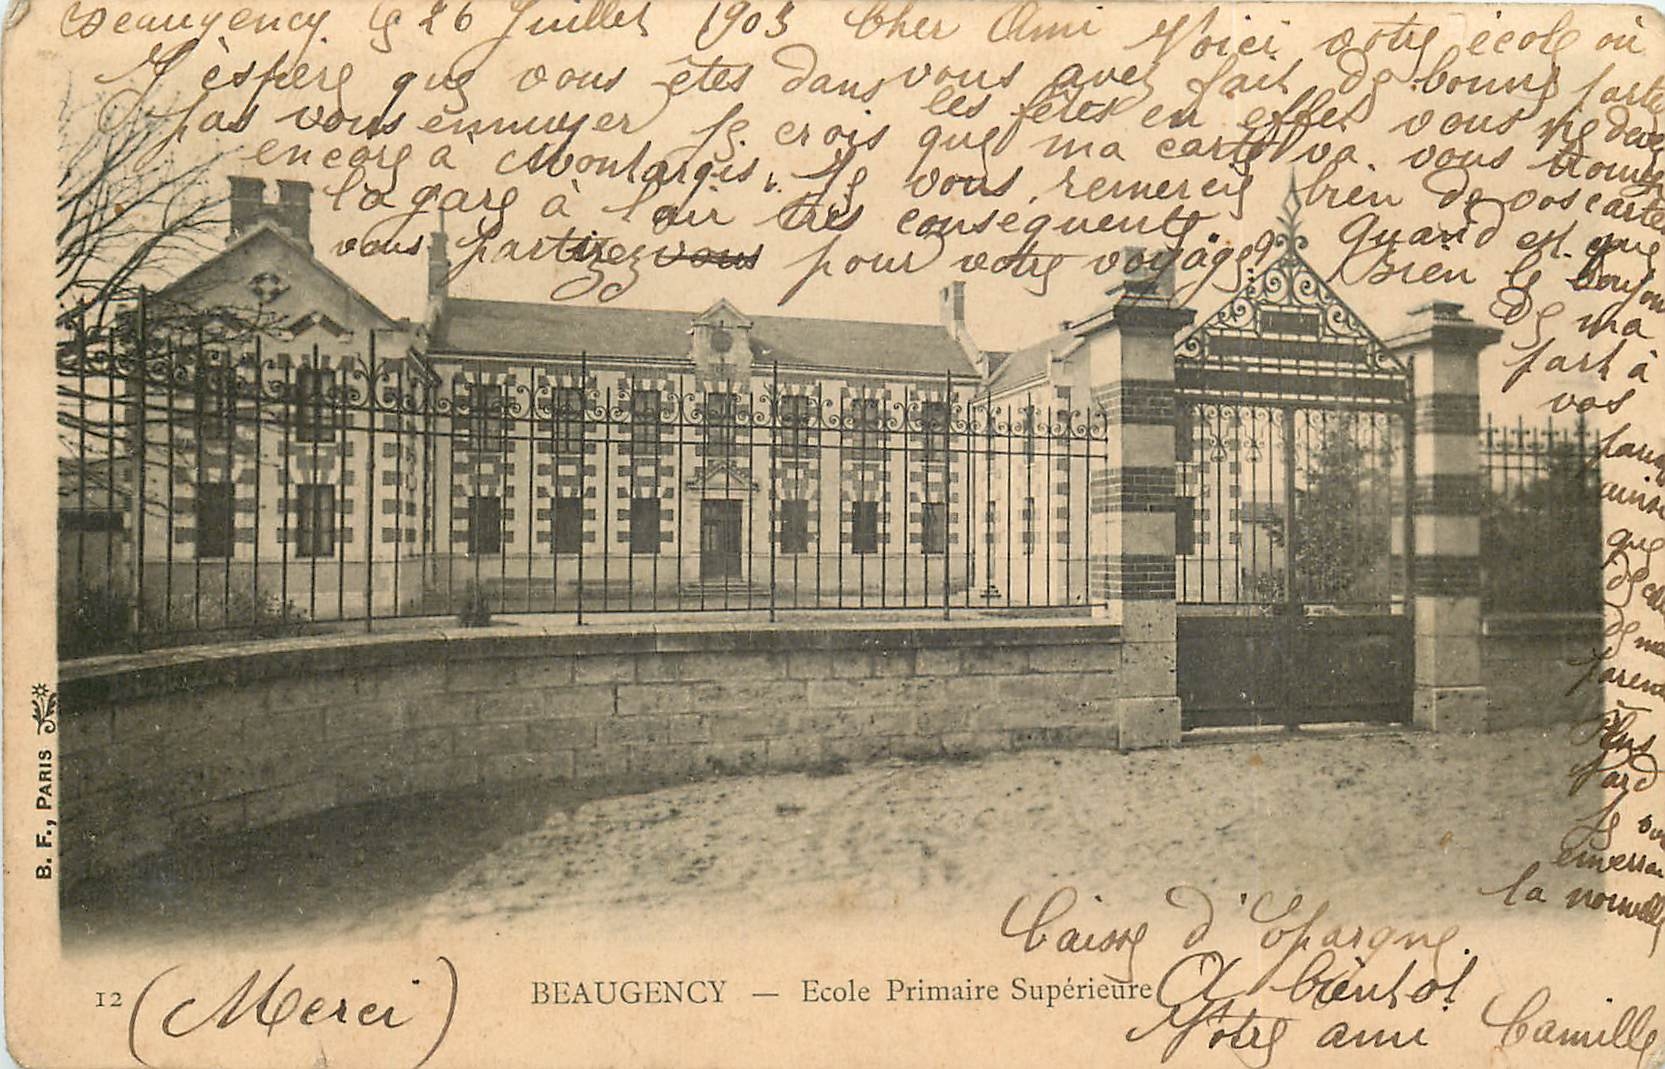 Beaugency le 26 Juillet 1903 Cher Ami Voici votre école où
J'èspère que vous êtes dans vous avez fait de bonne
les fêtes en effet vous ne devez
pas vous ennuyer Je crois que ma carte va vous trouver
encore à Montargis. Je vous remercie bien de vos cartes
la gare à l'air très consequente Quand est que
vous partirez vous pour votre voyage? Bien le bonjour
de ma
part à
vos
parents
ainsi
que
de
parents
Plus
tard
Je vous
enverrai
la nouvelle
Caisse d'Epargne.
A bientot
Votre ami Camille
(Merci)
12 BEAUGENCY — Ecole Primaire Supérieure
B. F., PARIS